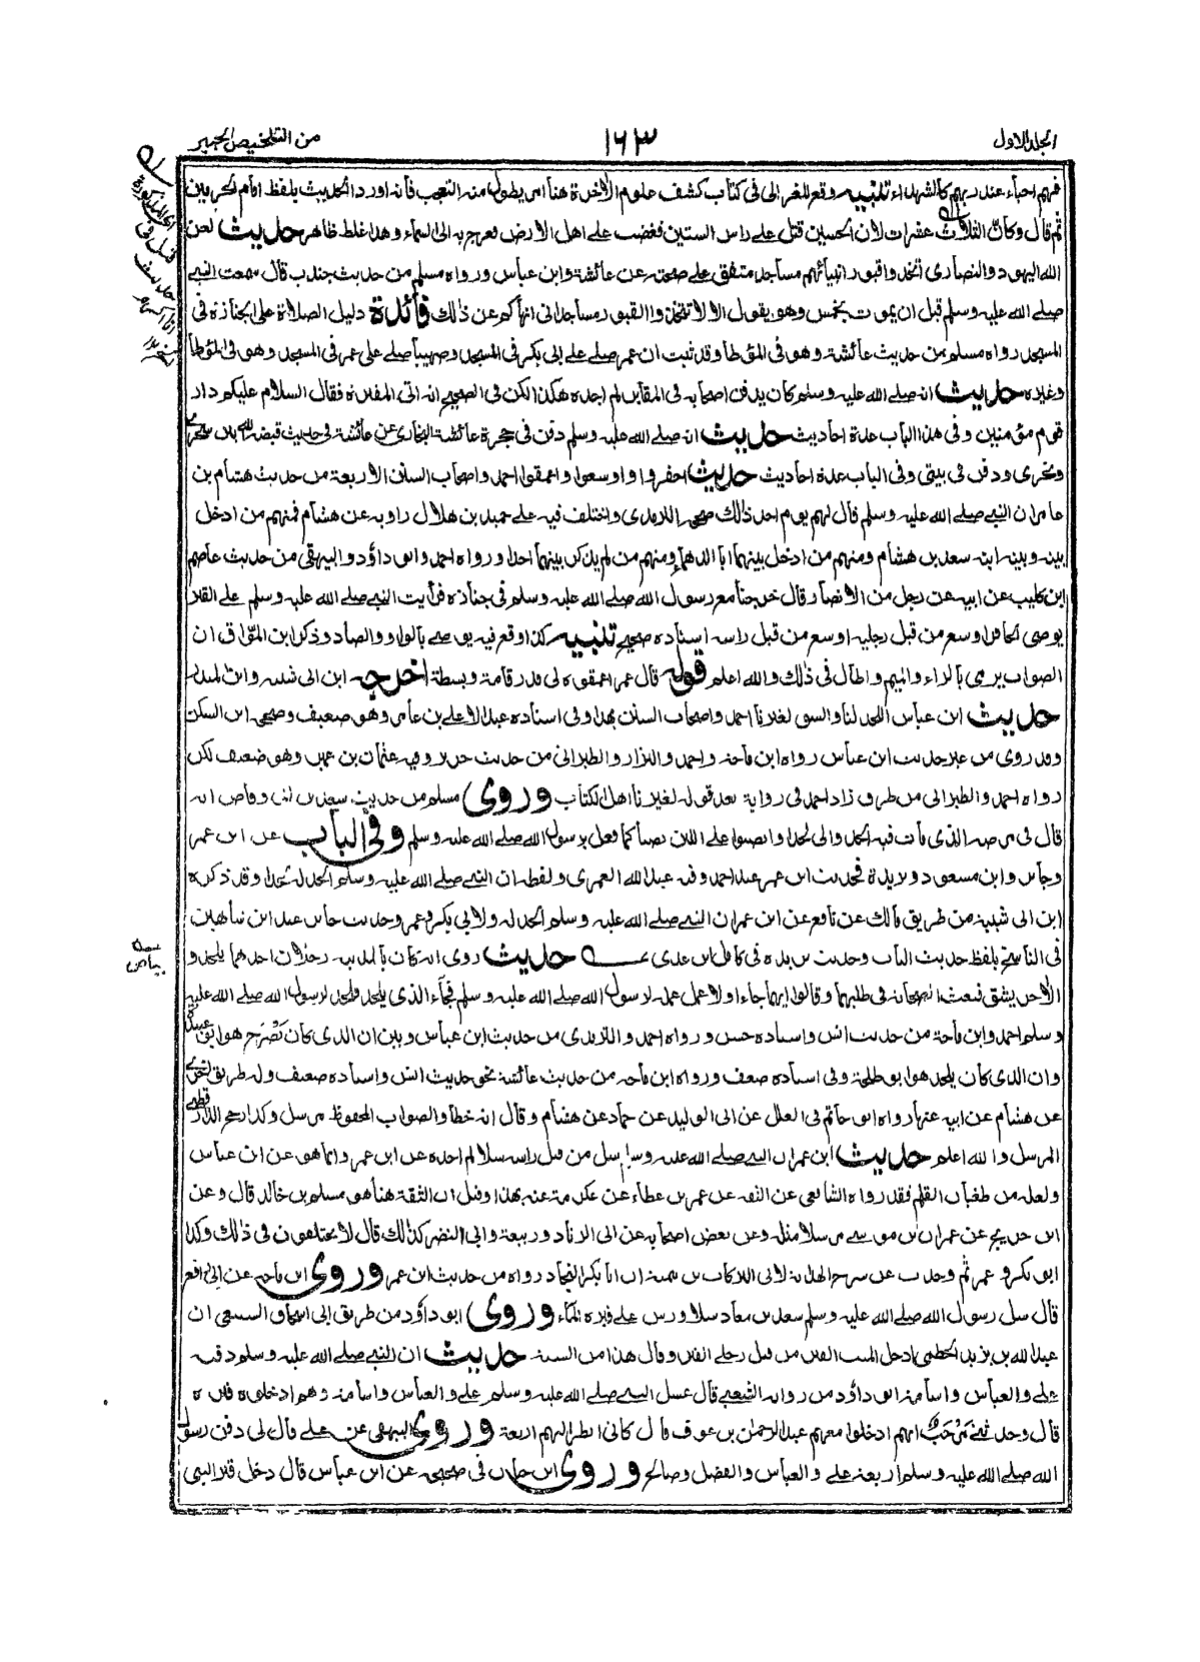 الجلد الاول
١٦٣
من التلخيص الحبير
فهم احياء عند ربهم كالشهداء تنبيه وقع للغزالى فى كتاب كشف علوم الآخرة هنا امر يطول منه التعجب فانه اورد الحديث بلفظ امام الحرمين
ثم قال وكان الثلاث عشرات لان الحسين قتل على راس الستين فغضب على اهل الارض فعرج به الى السماء وهذا غلط ظاهر حديث لعن
الله اليهود والنصارى اتخذوا قبور انبيائهم مساجد متفق على صحته عن عائشة وابن عباس ورواه مسلم من حديث جندب قال سمعت النبي
صلے الله عليه وسلم قبل ان يموت بخمس وهو يقول الا لا تتخذوا القبور مساجد انى انهاكم عن ذلك فائدة دليل الصلاة على الجنازة فى
المسجد رواه مسلم من حديث عائشة وهو فى المؤطا وقد ثبت ان عمر صلے على ابى بكر فى المسجد وصهيبا صلے على عمر فى المسجد وهو فى المؤطا
وغيره حديث انه صلے الله عليه وسلم كان يدفن اصحابه فى المقابر لم اجده هكذا لكن فى الصحيح انه اتى المقبرة فقال السلام عليكم دار
قوم مؤمنين وفى هذا الباب عدة احاديث حديث انه صلے الله عليه وسلم دفن فى حجرة عائشة البخارى عن عائشة فى حديث قبضه الله بين سحرى
ونحرى ودفن فى بيتى وفى الباب عدة احاديث حديث احفروا واوسعوا واعمقوا احمد واصحاب السنن الاربعة من حديث هشام بن
عامر ان النبي صلے الله عليه وسلم قال لهم يوم احد ذلك صححه الترمذى واختلف فيه على حميد بن هلال راويه عن هشام فمنهم من ادخل
بينه وبينه ابنه سعد بن هشام ومنهم من ادخل بينهما ابا الدهماء ومنهم من لم يذكر بينهما احدا ورواه احمد وابو داؤد والبيهقى من حديث عاصم
ابن كليب عن ابيه عن رجل من الانصار قال خرجنا مع رسول الله صلے الله عليه وسلم فى جنازة فرأيت النبي صلے الله عليه وسلم على القبر
يوصى الحافر اوسع من قبل رجليه اوسع من قبل راسه اسناده صحيح تنبيه كذا وقع فيه يوصى بالواو والصاد وذكر ابن المواق ان
الصواب يرمى بالراء والميم واطال فى ذلك والله اعلم قوله قال عمر اعمقوه لى قدر قامة وبسطة اخرجه ابن ابى شيبه وابن المنذر
حديث ابن عباس اللحد لنا والشق لغيرنا احمد واصحاب السنن بهذا وفى اسناده عبد الاعلى بن عامر وهو ضعيف وصححه ابن السكن
وقد روى من غير حديث ابن عباس رواه ابن ماجة واحمد والبزار والطبرانى من حديث جرير وفيه عثمان بن عمير وهو ضعيف لكن
رواه احمد والطبرانى من طرق زاد احمد فى رواية بعد قوله لغيرنا اهل الكتاب وروى مسلم من حديث سعد بن ابى وقاص انه
قال فى مرضه الذى مات فيه الحدوا لى لحدا وانصبوا على اللبن نصبا كما فعل برسول الله صلے الله عليه وسلم وفى الباب عن ابن عمر
وجابر وابن مسعود وبريدة فحديث ابن عمر عند احمد وفيه عبد الله العمرى ولفظه ان النبي صلے الله عليه وسلم الحد له لحدا وقد ذكره
ابن ابى شيبة من طريق مالك عن نافع عن ابن عمر ان النبي صلے الله عليه وسلم الحد له ولابى بكر وعمر وحديث جابر عند ابن شاهين
فى الناسخ بلفظ حديث الباب وحديث بريدة فى كامل ابن عدى حديث روى انه كان بالمدينة رجلان احدهما يلحد و
الآخر يشق فبعث الصحابة فى طلبهما وقالوا ايهما جاء اولا عمل عمله لرسول الله صلے الله عليه وسلم فجاء الذى يلحد فلحد لرسول الله صلے الله عليه
وسلم احمد وابن ماجة من حديث انس واسناده حسن ورواه احمد والترمذى من حديث ابن عباس وبين ان الذى كان يضرح هو ابو عبيدة
وان الذى كان يلحد هو ابو طلحة وفى اسناده ضعف ورواه ابن ماجه من حديث عائشة نحو حديث انس واسناده ضعيف وله طريق اخرى
عن هشام عن ابيه عنها رواه ابو حاتم فى العلل عن ابى الوليد عن حماد عن هشام وقال انه خطا والصواب المحفوظ مرسل وكذا رجح الدارقطنى
المرسل والله اعلم حديث ابن عمر ان النبي صلے الله عليه وسلم سل من قبل راسه سلا لم اجده عن ابن عمر وانما هو عن ابن عباس
ولعله من طغيان القلم فقد رواه الشافعى عن الثقة عن عمر بن عطاء عن عكرمة عنه بهذا وقيل ان الثقة هنا هو مسلم بن خالد قال وعن
ابن جريج عن عمران بن موسى مرسلا مثله وعن بعض اصحابه عن ابى الزناد وربيعة وابى النضر كذلك قال لا يختلفون فى ذلك وكذا
ابو بكر وعمر ثم ان ابا بكر النجاد رواه من حديث ابن عمر وروى ابن ماجه عن ابى رافع
قال سل رسول الله صلے الله عليه وسلم سعد بن معاذ سلا ورش على قبره الماء وروى ابو داؤد من طريق ابى اسحاق السبيعى ان
عبد الله بن يزيد الخطمى ادخل الميت القبر من قبل رجلى القبر وقال هذا من السنة حديث ان النبي صلے الله عليه وسلم دفنه
على والعباس واسامة ابو داؤد من رواية الشعبى قال غسل النبي صلے الله عليه وسلم على والعباس واسامة وهم ادخلوه قبره
قال وحدثنى مرحب انهم ادخلوا معهم عبد الرحمان بن عوف قال كانى انظر اليهم اربعة وروى البيهقى عن على قال لى دفن رسول
الله صلے الله عليه وسلم اربعة على والعباس والفضل وصالح وروى ابن حبان فى صحيحه عن ابن عباس قال دخل قبر النبي